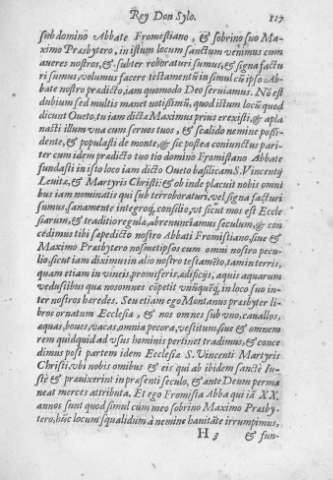 Rey Don Sylo. 117
sub domino Abbate Fromestiano, & sobrino suo Ma-
ximo Presbytero, in istum locum sanctum venimus cum
averes nostros, & subter roboraturi sumus, & signa factu
ri sumus, volumus facere testamentū in simul cū ipso Ab-
bate nostro prædicto, iam quomodo Deo serviamus. Nō est
dubium sed multis manet notissimū, quod istum locū quod
dicunt Oveto, tu iam dicte Maximus prius erexisti, & apla
nasti illum una cum servos tuos, & scalido nemine possi-
dente, & populasti de monte, & sic postea coniunctus pari-
ter cum idem prædicto tuo tio domino Fromistano Abbate
fundasti in isto loco iam dicto Oveto basilicam S. Vincentij
Levitæ, & Martyris Christi: & ob inde placuit nobis omni
bus iam nominatis qui sub terroboraturi, vel signa facturi
sumus, sanamente integroq; consilio, vt sicut mos est Eccle-
siarum, & traditio regula, abrenunciamus seculum, & con
cedimus tibi sæpedicto nostro Abbati Fromistiano, sive &
Maximo Presbytero nosmetipsos cum omni nostro pecu-
lio, sicut iam diximus in alio nostro testamēto, tam in terris,
quam etiam in vineis, promiferis, ædificijs, aquis aquarum
veductibus qua nosomnes cōpetit vnūquēq;, in loco suo in-
ter nostros heredes. Seu etiam ego Montanus presbyter li-
bros ornatum Ecclesia, & nos omnes sub vno, cavallos,
aquas, boves, vacas, omnia pecora, vestitum, sive & omnem
rem quidquid ad vsus hominis pertinet tradimus, & conce
dimus post partem idem Ecclesia S. Vincenti Martyris
Christi, vbi nobis omnibus & eis qui ab ibidem sanctè In-
stè & prauixerint in præsenti seculo, & ante Deum perma
neat merces attributa. Et ego Fromista Abba qui iā XX.
annos sunt quod simul cum meo sobrino Maximo Presby-
tero, hūc locum squalidum à nemine havitāte irrumpimus,
H 3 & fun-